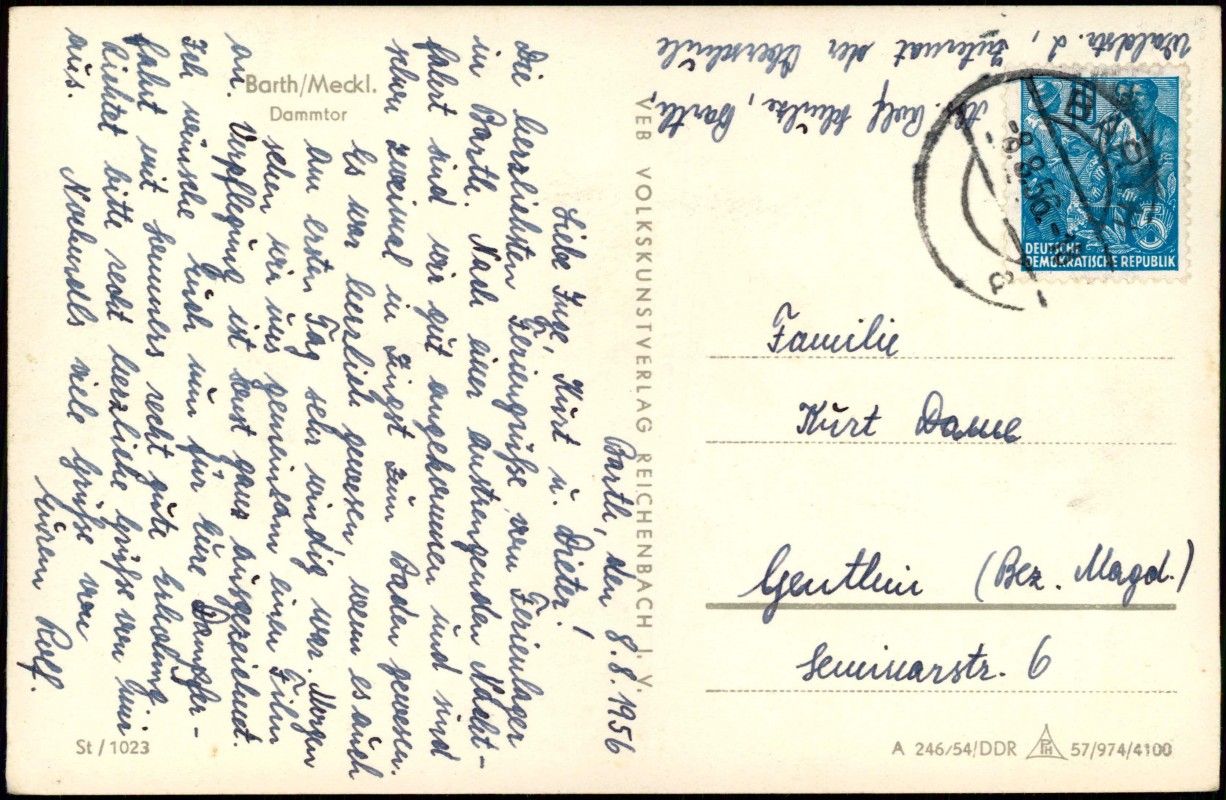 Barth/Meckl.
Dammtor
Barth, den 8.8.1956
Liebe Inge, Kurt u. Dieter!
Die herzlichsten Feriengrüße vom Ferienlager
in Barth. Nach einer anstrengenden Nacht-
fahrt sind wir gut angekommen und sind
schon zweimal in Zingst zum Baden gewesen.
Es war herrlich gewesen, wenn es auch
am ersten Tag sehr windig war. Morgen
sehen wir uns gemeinsam einen Film
an. Verpflegung ist sonst ganz ausgezeichnet.
Ich wünsche Euch nun für Eure Dampfer-
fahrt mit Hemmers recht gute Erholung.
Richtet bitte recht herzliche Grüße von mir
aus. Nochmals viele Grüße von
Eurem Rolf.
St/1023
VEB VOLKSKUNSTVERLAG REICHENBACH I. V.
Abs. Rolf Schulze, Barth,
Internat der Oberschule
Waldstr. 2,
-8.8.56
5
DEUTSCHE
DEMOKRATISCHE REPUBLIK
Familie
Kurt Dame
Genthin (Bez. Magd.)
Seminarstr. 6
A 246/54/DDR 57/974/4100